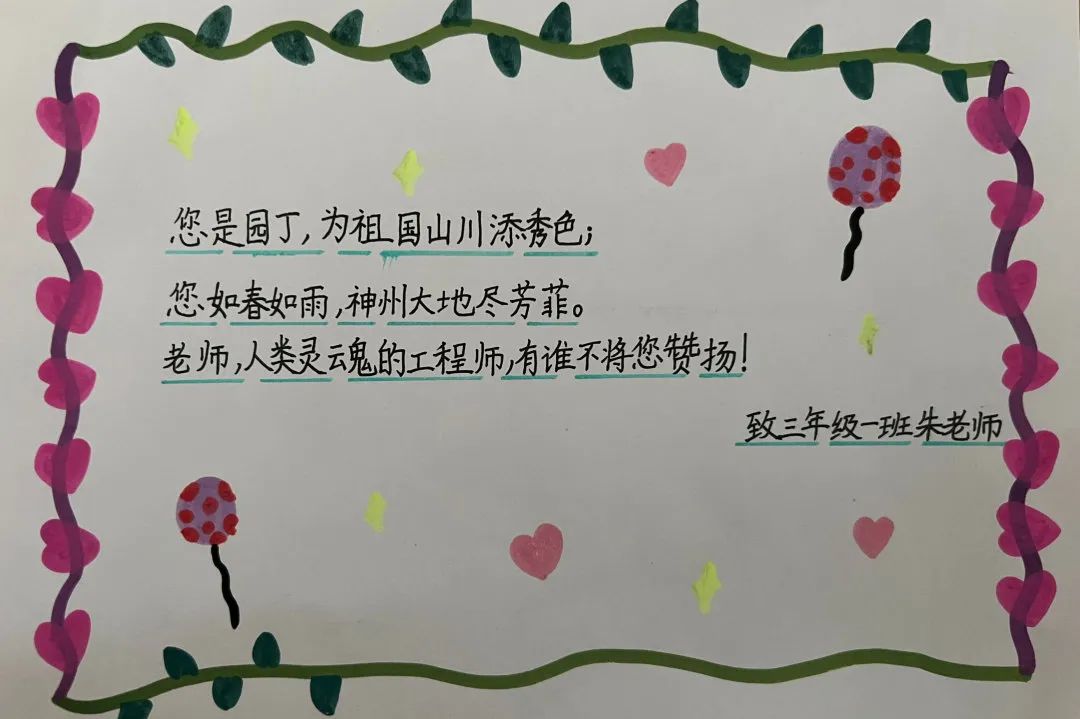 您是园丁,为祖国山川添秀色;
您如春如雨,神州大地尽芳菲。
老师,人类灵云魂的工程师,有谁不将您赞扬!
致三年级一班朱老师